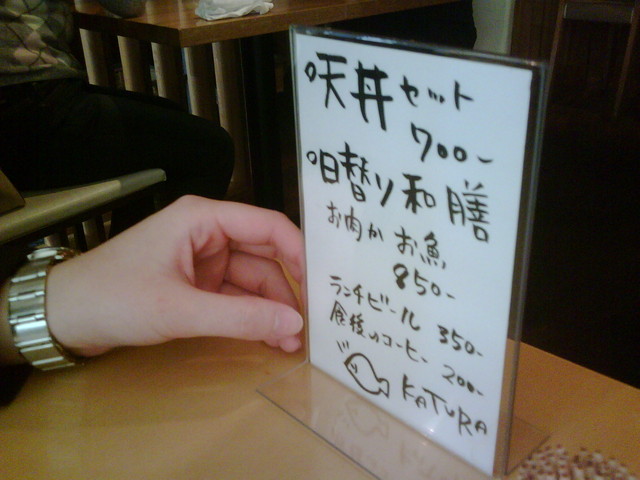 ○天丼セット
700-
○日替り和膳
お肉か お魚
850-
ランチビール 350-
食後のコーヒー 200-
KATURA